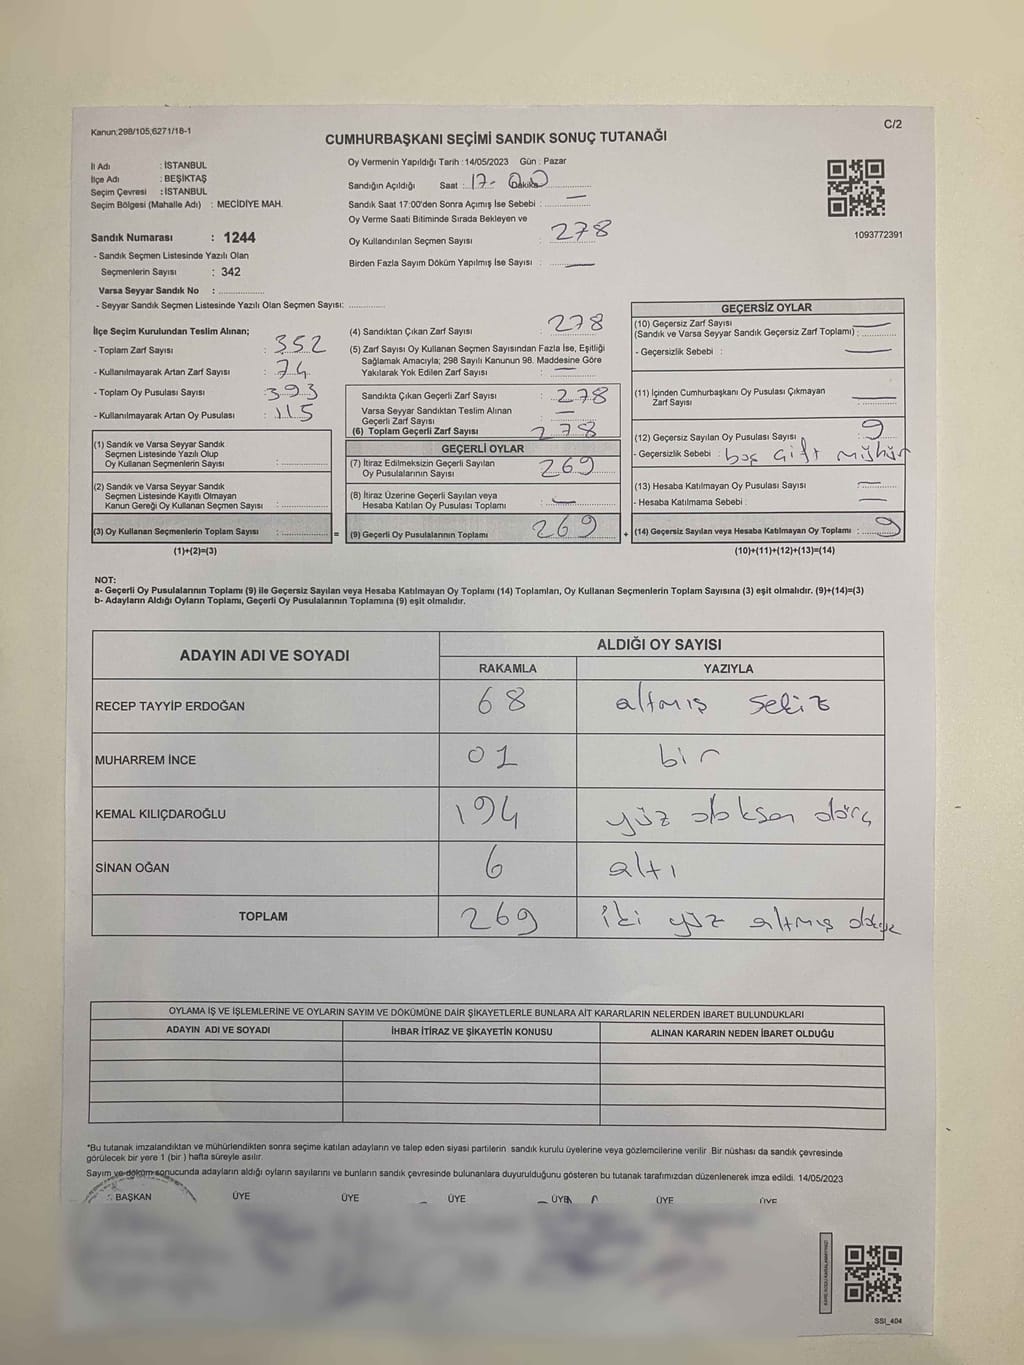 Kanun;298/105;6271/18-1
C/2
CUMHURBAŞKANI SEÇİMİ SANDIK SONUÇ TUTANAĞI
İl Adı : İSTANBUL
İlçe Adı : BEŞİKTAŞ
Seçim Çevresi : İSTANBUL
Seçim Bölgesi (Mahalle Adı) : MECİDİYE MAH.
Sandık Numarası : 1244
- Sandık Seçmen Listesinde Yazılı Olan
Seçmenlerin Sayısı : 342
Varsa Seyyar Sandık No :
- Seyyar Sandık Seçmen Listesinde Yazılı Olan Seçmen Sayısı:
Oy Vermenin Yapıldığı Tarih :14/05/2023 Gün : Pazar
Sandığın Açıldığı Saat : 17- 00 Dakika
Sandık Saat 17:00'den Sonra Açımış İse Sebebi : —
Oy Verme Saati Bitiminde Sırada Bekleyen ve
Oy Kullandırılan Seçmen Sayısı : 278
Birden Fazla Sayım Döküm Yapılmış İse Sayısı : —
1093772391
İlçe Seçim Kurulundan Teslim Alınan;
- Toplam Zarf Sayısı : 352
- Kullanılmayarak Artan Zarf Sayısı : 74
- Toplam Oy Pusulası Sayısı : 393
- Kullanılmayarak Artan Oy Pusulası : 115
(1) Sandık ve Varsa Seyyar Sandık
Seçmen Listesinde Yazılı Olup
Oy Kullanan Seçmenlerin Sayısı :
(2) Sandık ve Varsa Seyyar Sandık
Seçmen Listesinde Kayıtlı Olmayan
Kanun Gereği Oy Kullanan Seçmen Sayısı :
(3) Oy Kullanan Seçmenlerin Toplam Sayısı :
(1)+(2)=(3)
(4) Sandıktan Çıkan Zarf Sayısı : 278
(5) Zarf Sayısı Oy Kullanan Seçmen Sayısından Fazla İse, Eşitliği
Sağlamak Amacıyla; 298 Sayılı Kanunun 98. Maddesine Göre
Yakılarak Yok Edilen Zarf Sayısı : —
Sandıkta Çıkan Geçerli Zarf Sayısı : 278
Varsa Seyyar Sandıktan Teslim Alınan
Geçerli Zarf Sayısı : —
(6) Toplam Geçerli Zarf Sayısı 278
GEÇERLİ OYLAR
(7) İtiraz Edilmeksizin Geçerli Sayılan
Oy Pusulasının Sayısı 269
(8) İtiraz Üzerine Geçerli Sayılan veya
Hesaba Katılan Oy Pusulası Toplamı : —
= (9) Geçerli Oy Pusulalarının Toplamı 269
GEÇERSİZ OYLAR
(10) Geçersiz Zarf Sayısı —
(Sandık ve Varsa Seyyar Sandık Geçersiz Zarf Toplamı) :
- Geçersizlik Sebebi : —
(11) İçinden Cumhurbaşkanı Oy Pusulası Çıkmayan
Zarf Sayısı : —
(12) Geçersiz Sayılan Oy Pusulası Sayısı : 9
- Geçersizlik Sebebi : boş çift mühür
(13) Hesaba Katılmayan Oy Pusulası Sayısı : —
- Hesaba Katılmama Sebebi : —
+ (14) Geçersiz Sayılan veya Hesaba Katılmayan Oy Toplamı : 9
(10)+(11)+(12)+(13)=(14)
NOT:
a- Geçerli Oy Pusulalarının Toplamı (9) ile Geçersiz Sayılan veya Hesaba Katılmayan Oy Toplamı (14) Toplamları, Oy Kullanan Seçmenlerin Toplam Sayısına (3) eşit olmalıdır. (9)+(14)=(3)
b- Adayların Aldığı Oyların Toplamı, Geçerli Oy Pusulalarının Toplamına (9) eşit olmalıdır.
ADAYIN ADI VE SOYADI ALDIĞI OY SAYISI
RAKAMLA YAZIYLA
RECEP TAYYİP ERDOĞAN 68 altmış sekiz
MUHARREM İNCE 01 bir
KEMAL KILIÇDAROĞLU 194 yüz doksan dört
SİNAN OĞAN 6 altı
TOPLAM 269 iki yüz altmış dokuz
OYLAMA İŞ VE İŞLEMLERİNE VE OYLARIN SAYIM VE DÖKÜMÜNE DAİR ŞİKAYETLERLE BUNLARA AİT KARARLARIN NELERDEN İBARET BULUNDUKLARI
ADAYIN ADI VE SOYADI İHBAR İTİRAZ VE ŞİKAYETİN KONUSU ALINAN KARARIN NEDEN İBARET OLDUĞU
*Bu tutanak imzalandıktan ve mühürlendikten sonra seçime katılan adayların ve talep eden siyasi partilerin sandık kurulu üyelerine veya gözlemcilerine verilir. Bir nüshası da sandık çevresinde
görülecek bir yere 1 (bir ) hafta süreyle asılır.
Sayım ve döküm sonucunda adayların aldığı oyların sayılarını ve bunların sandık çevresinde bulunanlara duyurulduğunu gösteren bu tutanak tarafımızdan düzenlenerek imza edildi. 14/05/2023
BAŞKAN ÜYE ÜYE ÜYE ÜYE ÜYE ÜYE
SSI_404